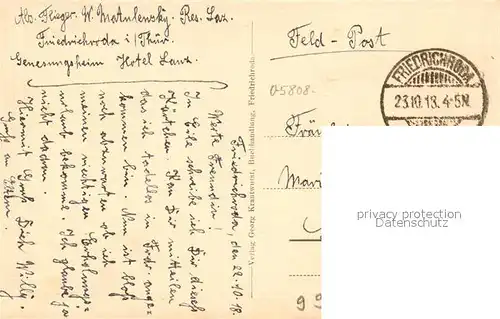 Abs. Flieger. W. Matulensky. Res. Laz.
Friedrichroda i/Thür.
Genesungsheim Hotel Lanz.
Feld-Post
FRIEDRICHRODA
23.10.18. 4-5N.
05808.
Friedrichroda, den 22.10.18.
Werte Freundin!
In Eile schreibe ich Dir dieses
Kärtchen. Kan Dir mitteilen
das ich tadellos in Frdr. ange-
kommen bin. Nun ist bloß
noch abzuwarten ob ich
meinen richtigen Erholungs-
urlaub bekomme. Ich glaube ja
nicht daran.
Hiermit Gruß Dich Willy.
Gruß an Eltern.
Verlag: Georg Kesselring, Buchhandlung, Friedrichroda
Fräu
Mari
privacy protection
Datenschutz
99